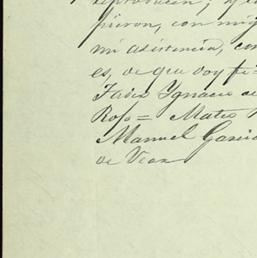 pieron, con mi
mi asistencia, con
es, de que doy fé =
Ignacio de
Rojo = Mateo
Manuel Garcia
de Vear